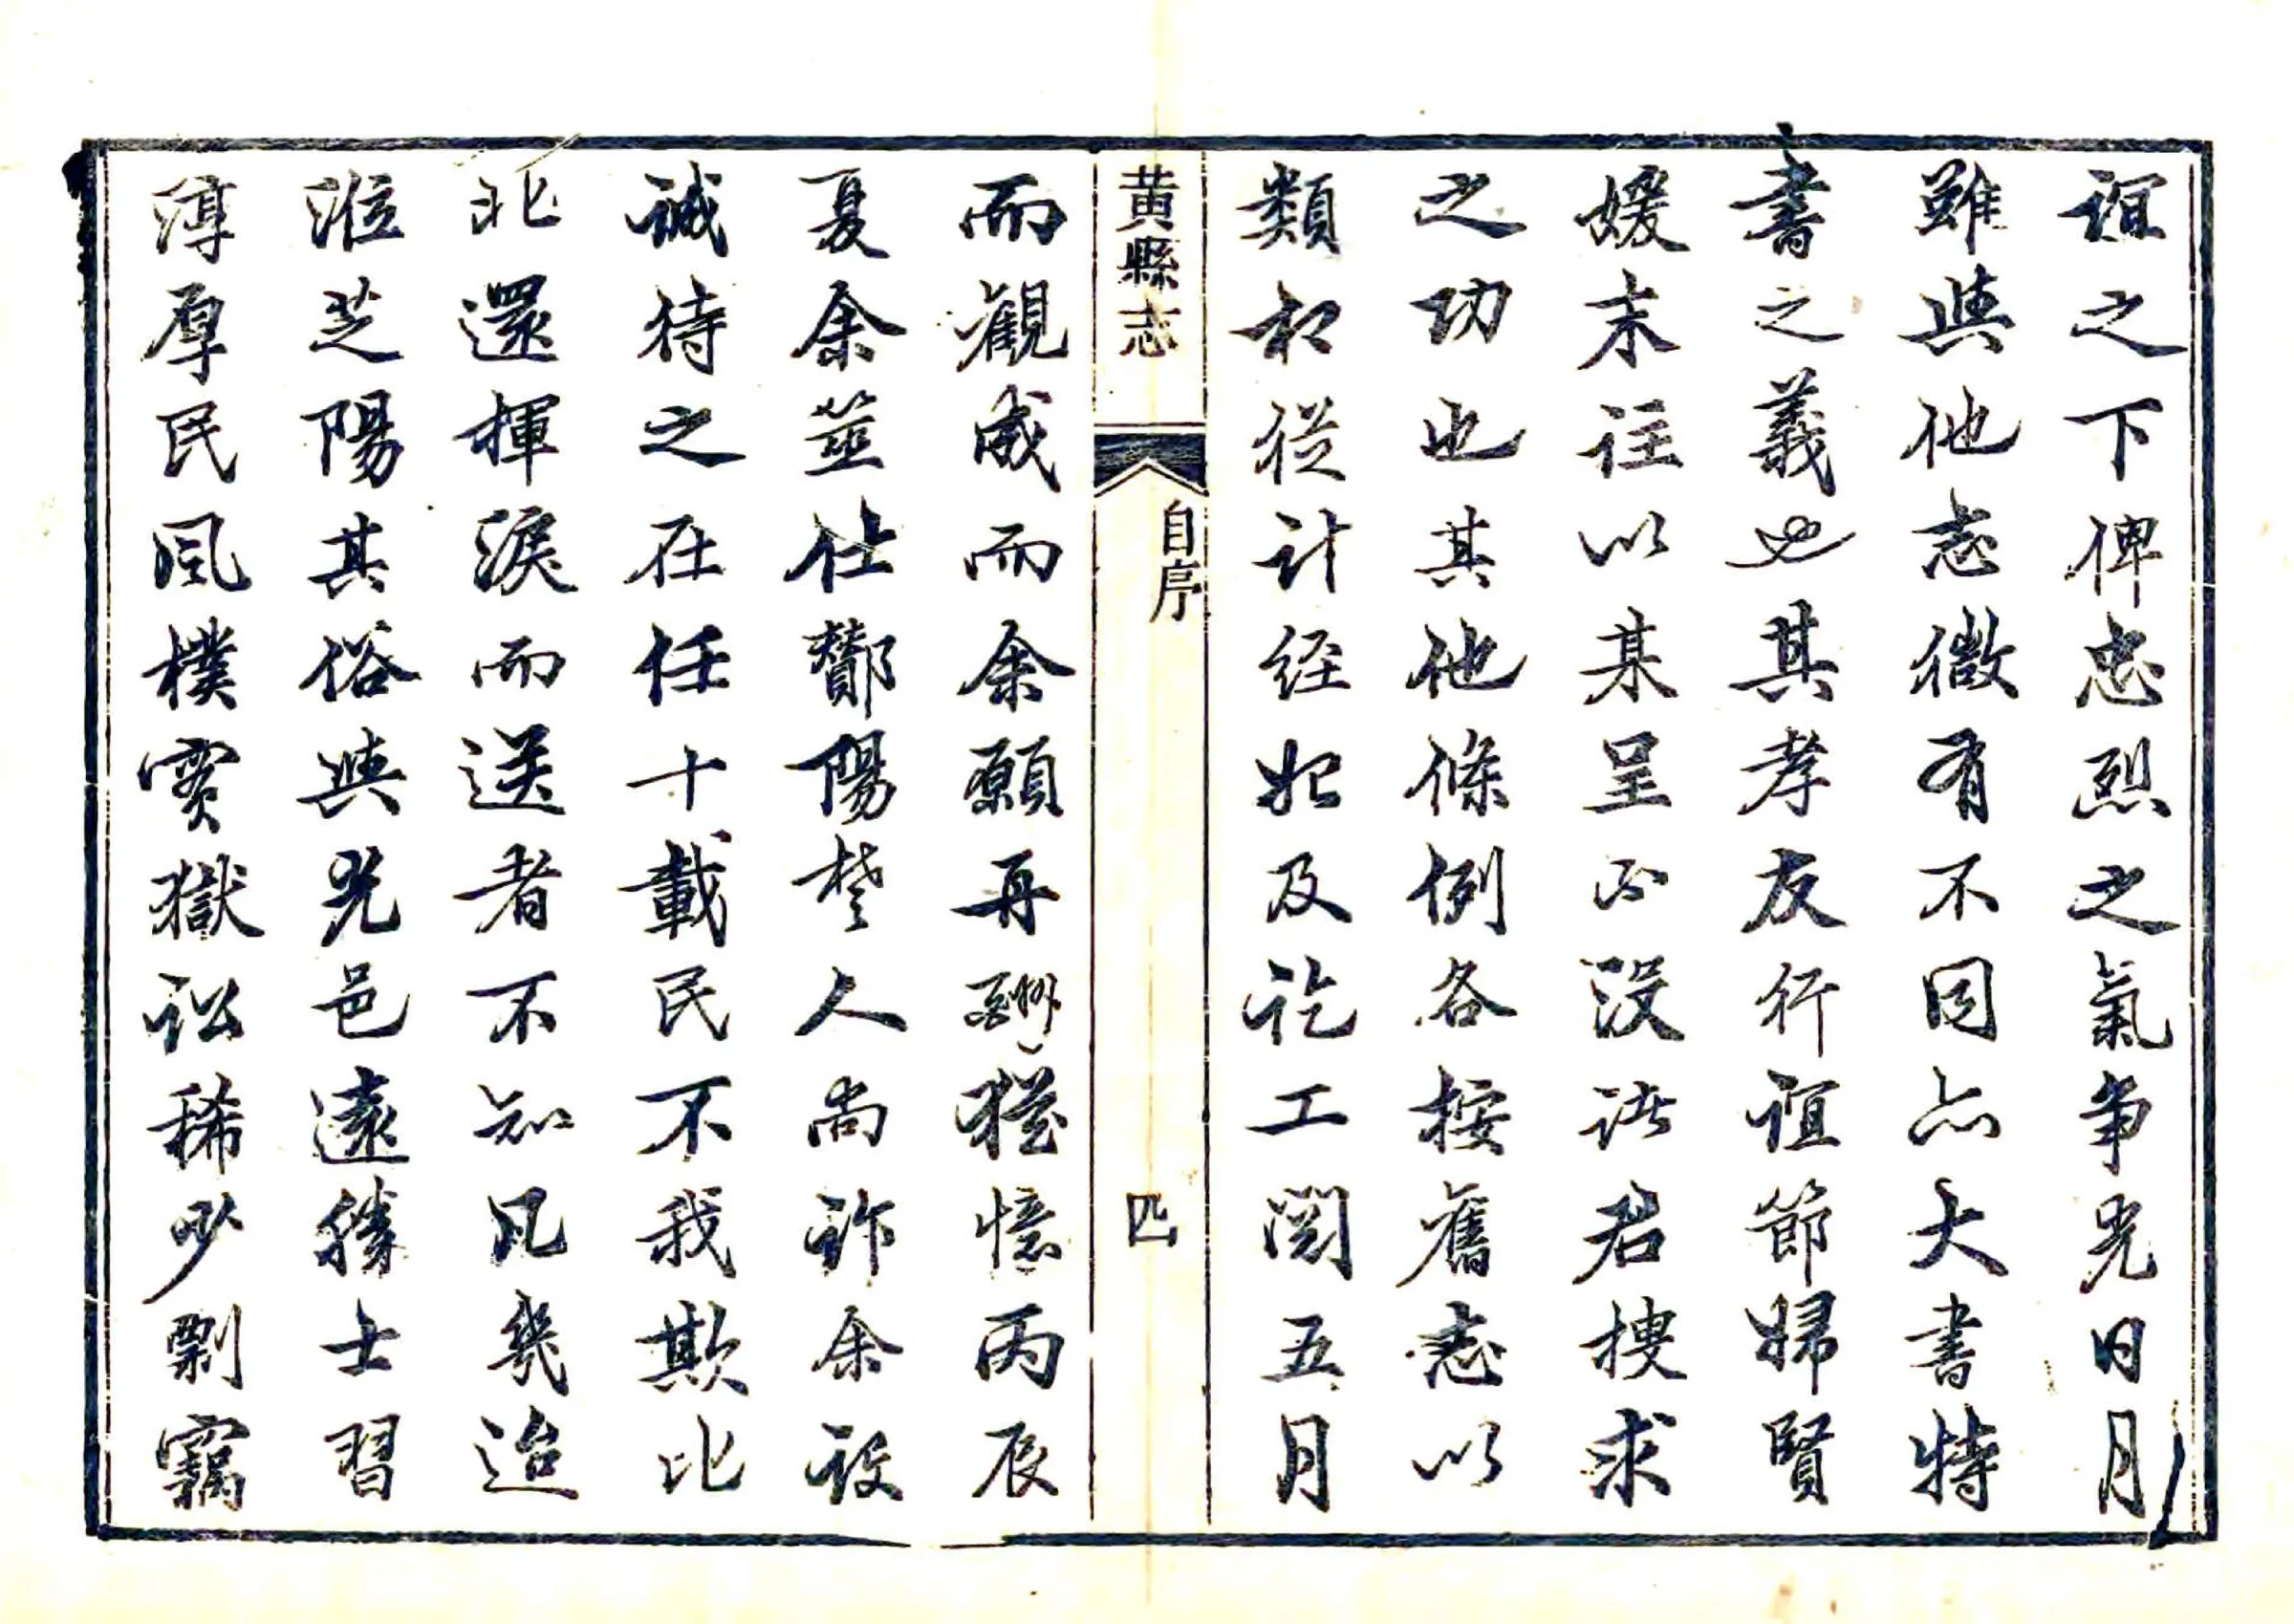 誼之下俾忠烈之氣爭光日月
雖與他志微有不同亦大書特
書之義也其孝友行誼節婦賢
媛末註以某呈沒諸君搜求
之功也其他條例各按舊志以
類相從計經始及訖工閱五月
黄縣志
自序
四
而觀成而余願再酬猶憶丙辰
夏余筮仕酇陽楚人尚詐余設
誠待之在任十載民不我欺比
北還揮淚而送者不知凡幾迨
涖芝陽其俗與光邑遠勝士習
淳厚民風樸實獄訟稀少剽竊